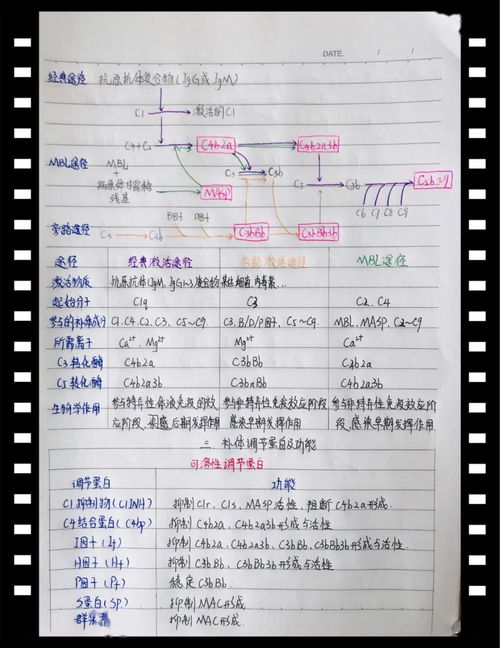 DATE. / /
经典途径 抗原抗体复合物(IgG或IgM)
C1 激活的C1
C4+C2 C4b2a C4b2a3b
MBL途径 MBL C3 C3b C5 C5b C5b~9
+
病原体甘露糖 MASP
残基
C6 C7 C8 C9
B因子 D因子
旁路途径 C3 C3b C3bBb C3bBb3b
途径 经典激活途径 旁路激活途径 MBL途径
激活物质 抗原抗体(IgM、IgG1~3)复合物 某些细菌、内毒素...
起始分子 C1q C3 C2、C4
参与的补体成分 C1、C4、C2、C3、C5~C9 C3、B/D/P因子、C5~C9 MBL、MASP、C2~C9
所需离子 Ca²⁺、Mg²⁺ Mg²⁺ Ca²⁺
C3转化酶 C4b2a C3bBb C4b2a
C5转化酶 C4b2a3b C3bnBb C4b2a3b
生物学作用 参与特异性体液免疫的效 参与非特异性免疫效应阶段 参与非特异性免疫效应阶
应阶段、感染后期发挥作用 感染早期发挥作用 段、感染早期发挥作用
三、补体调节蛋白及功能
可溶性调节蛋白
调节蛋白 功能
C1抑制物(C1INH) 抑制C1r、C1s、MASP活性,阻断C4b2a形成
C4结合蛋白(C4bp) 抑制C4b2a、C4b2a3b形成与活性
I因子(If) 抑制C4b2a、C4b2a3b、C3bBb、C3bBb3b形成与活性
H因子(Hf) 抑制C3bBb、C3bBb3b形成与活性
P因子(Pf) 稳定C3bBb
S蛋白(SP) 抑制MAC形成
群集素 抑制MAC形成